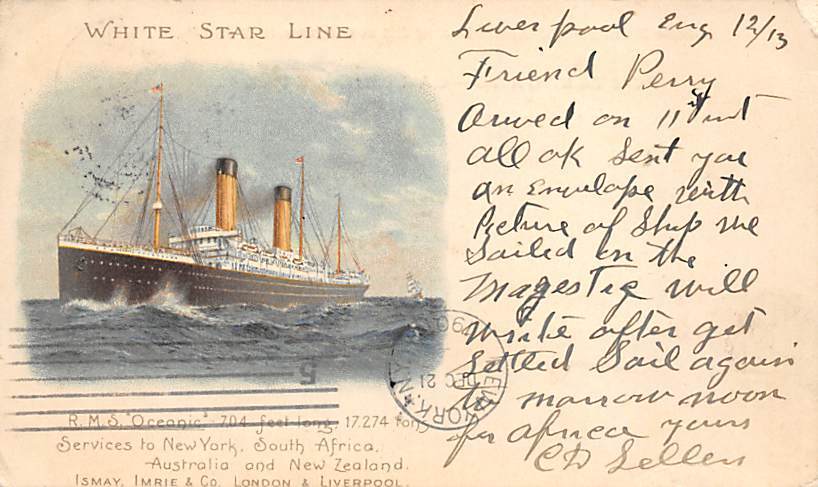 WHITE STAR LINE
R.M.S. "Oceanic" 704 feet long, 17,274 tons
Services to New York, South Africa,
Australia and New Zealand.
ISMAY, IMRIE & CO. LONDON & LIVERPOOL.
Liverpool Eng 12/13
Friend Perry
Arived on 11th
all ok Sent you
an Envelope with
Picture of Ship we
Sailed in the
Magestic will
write after get
Settled Sail again
to morrow noon
for africa yours
C D Sellers
NEW YORK, N.Y.
DEC 21
5